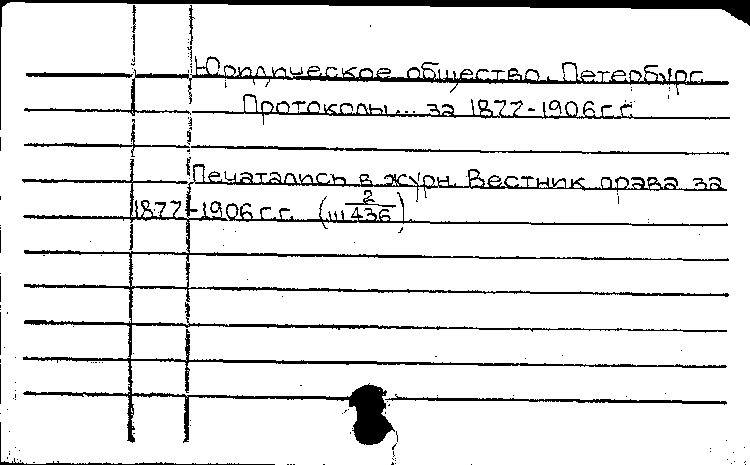 Юридическое общество. Петербург
Протоколы... за 1877-1906 г.г.
Печатались в журн. Вестник права за
1877-1906 г.г. (Ш 2/436).